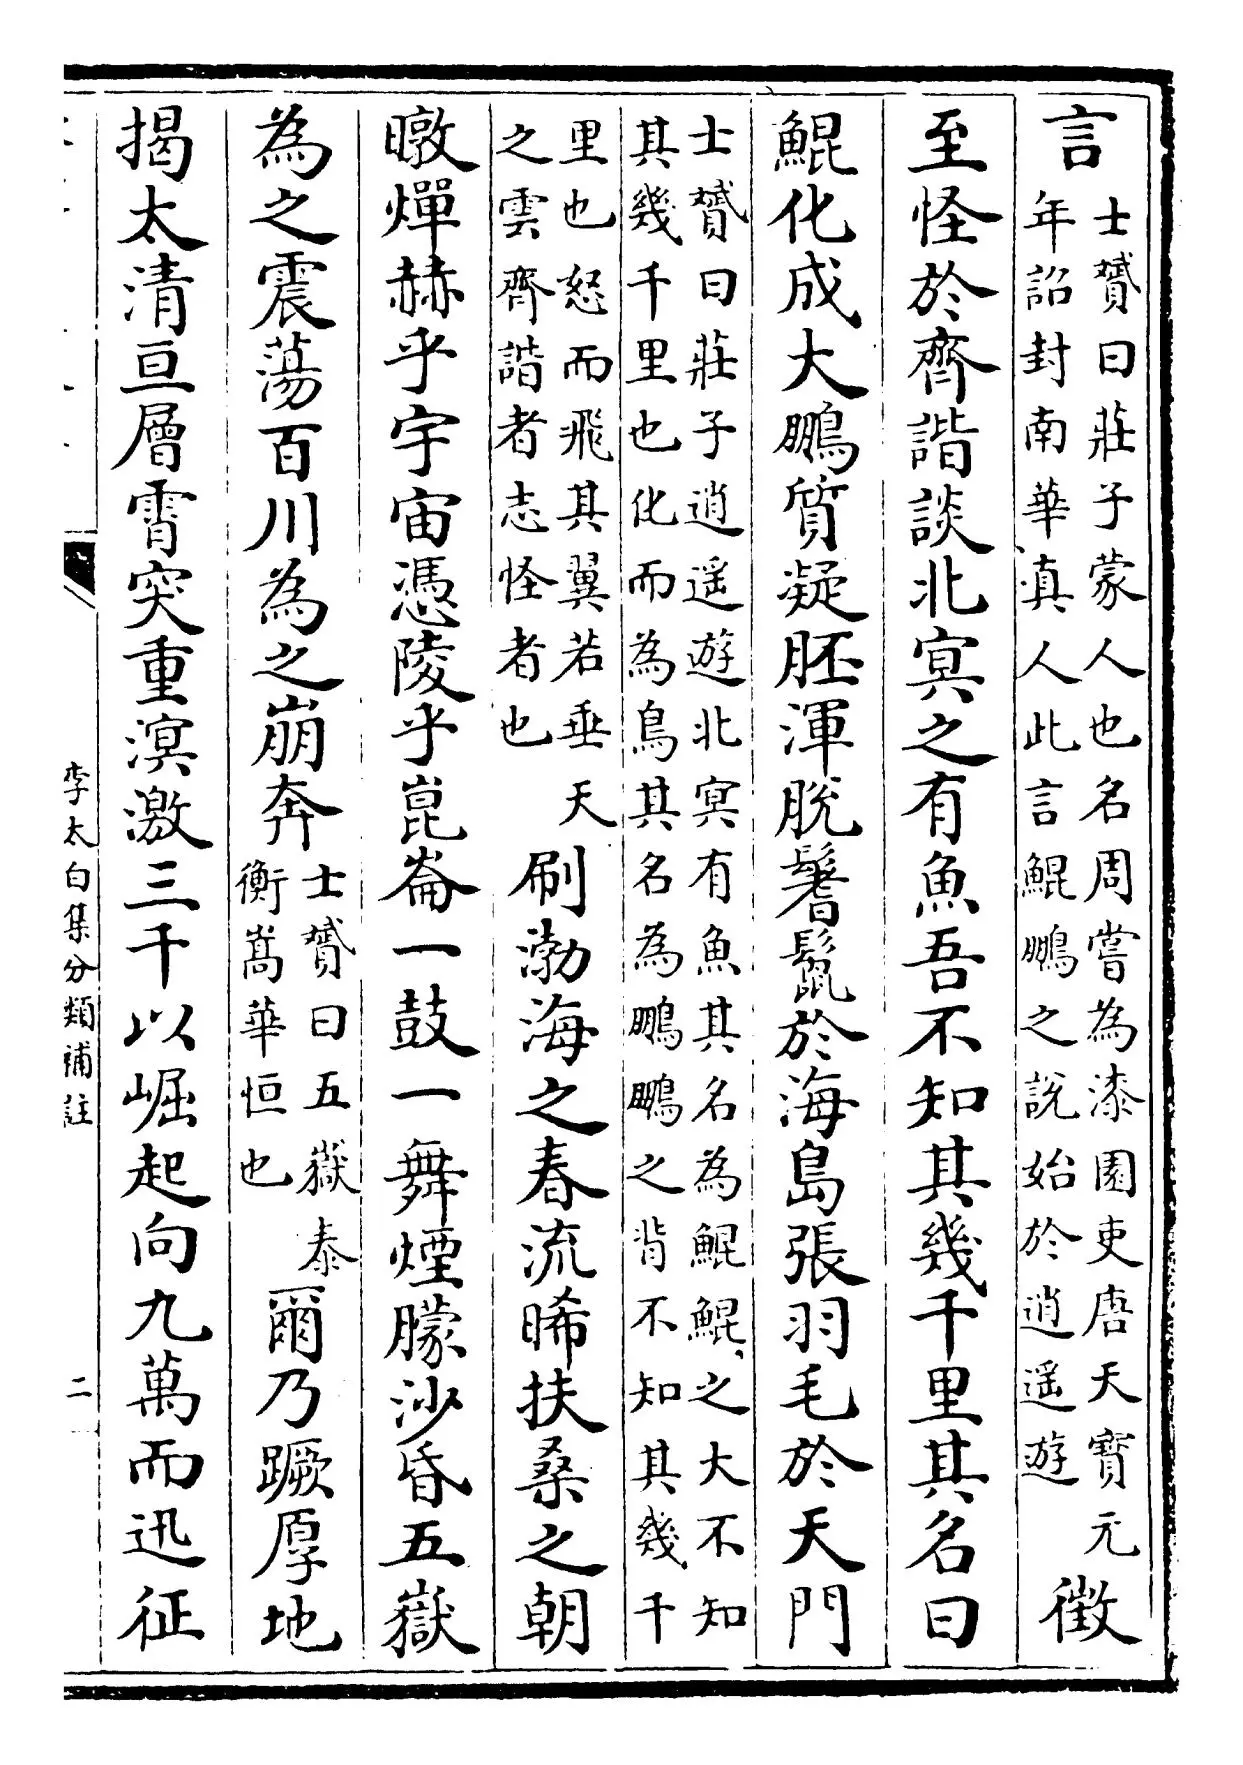 言
士贇曰莊子蒙人也名周嘗為漆園吏唐天寶元
年詔封南華真人此言鯤鵬之說始於逍遥遊
徵
至怪於齊諧談北㝠之有魚吾不知其幾千里其名曰
鯤化成大鵬質凝胚渾脫鬐鬛於海島張羽毛於天門
士贇曰莊子逍遥遊北㝠有魚其名為鯤鯤之大不知
其幾千里也化而為鳥其名為鵬鵬之背不知其幾千
里也怒而飛其翼若垂天
之雲齊諧者志怪者也
刷渤海之春流晞扶桑之朝
暾燀赫乎宇宙憑陵乎崑崙一鼓一舞煙朦沙昏五嶽
為之震蕩百川為之崩奔
士贇曰五嶽泰
衡嵩華恒也
爾乃蹶厚地
揭太清亘層霄突重溟激三千以崛起向九萬而迅征
李太白集分類補註
二